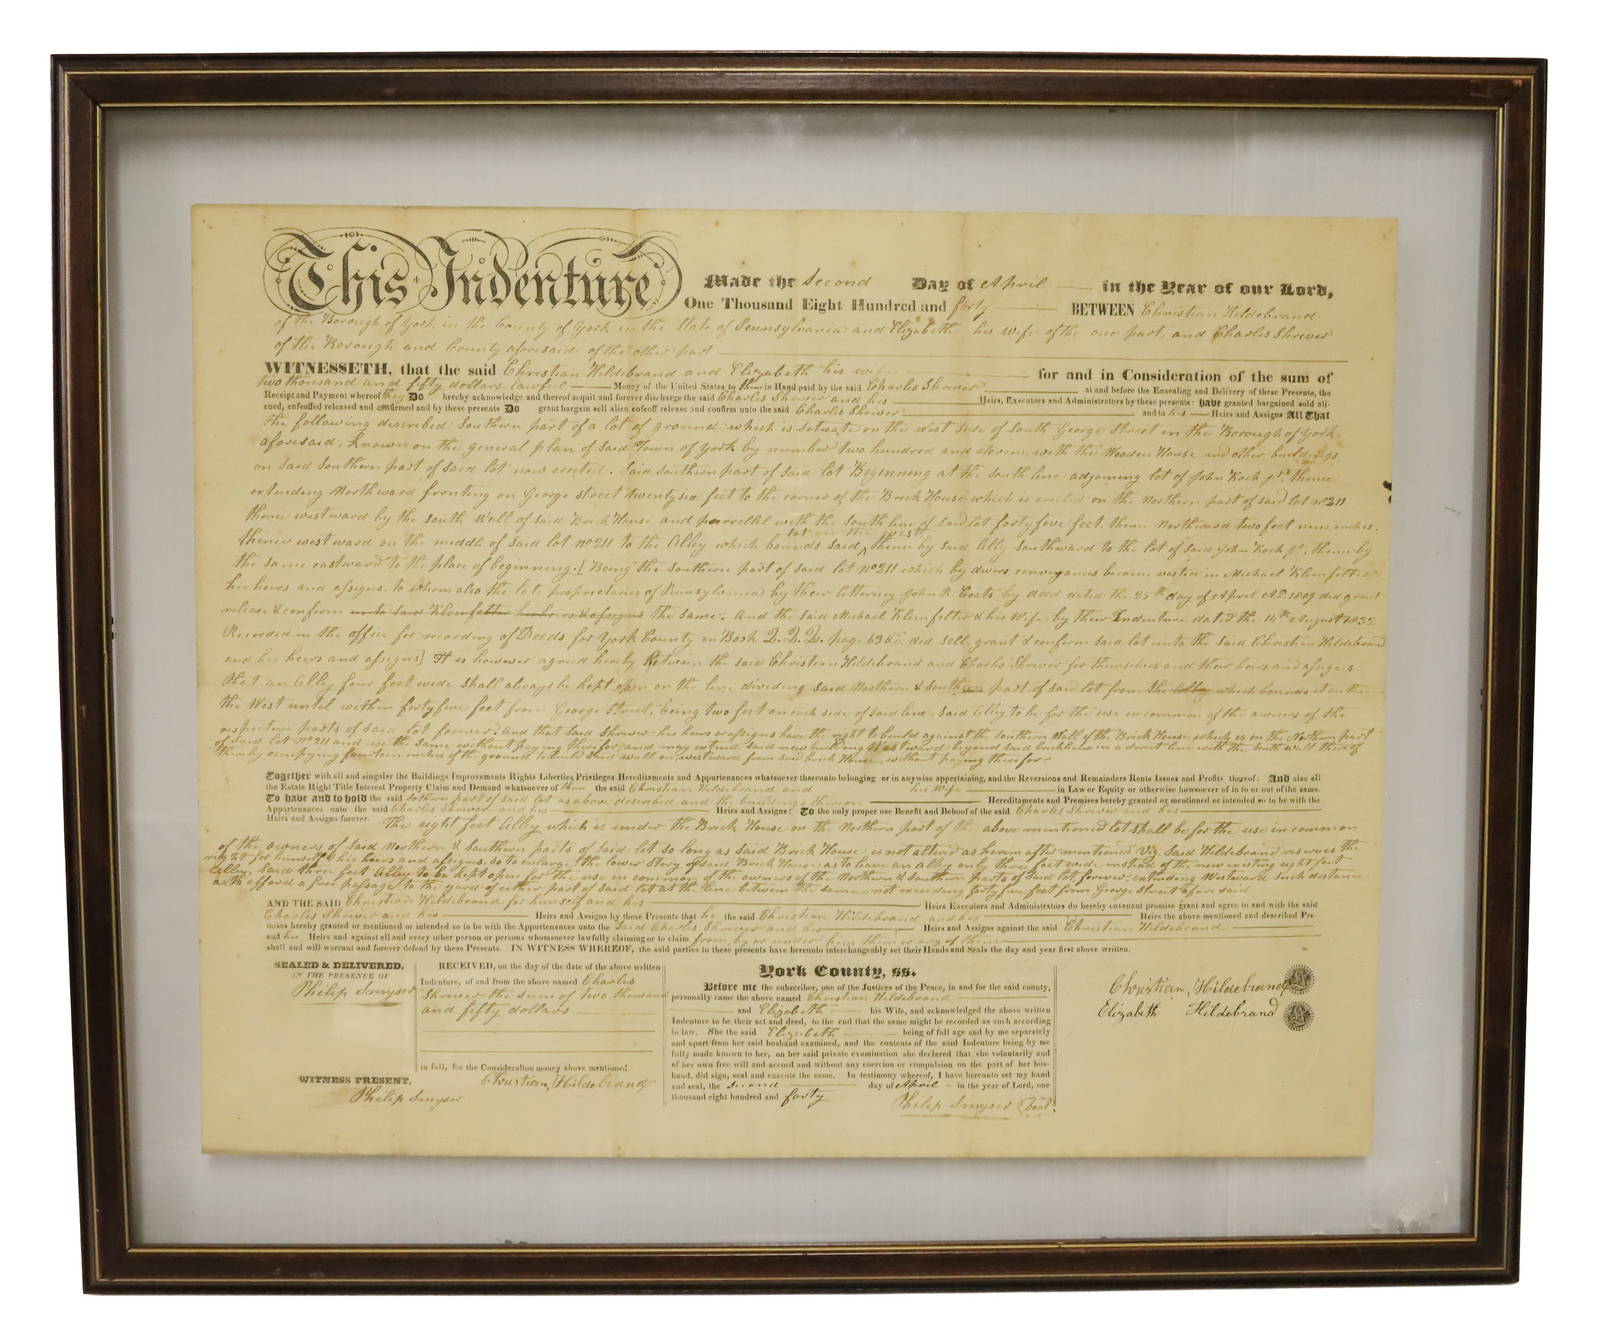 This Indenture Made the Second Day of April in the Year of our Lord,
One Thousand Eight Hundred and forty BETWEEN Christian Hildebrand
of the Borough of York in the County of York in the State of Pennsylvania and Elizabeth his wife of the one part and Charles Shrever
of the Borough and County aforesaid of the other part
WITNESSETH, that the said Christian Hildebrand and Elizabeth his wife for and in Consideration of the sum of
two thousand and fifty dollars lawful Money of the United States to them in Hand paid by the said Charles Shrever at and before the Ensealing and Delivery of these Presents, the
Receipt and Payment whereof they Do hereby acknowledge and thereof acquit and forever discharge the said Charles Shrever and his Heirs, Executors and Administrators by these presents: have granted bargained sold ali-
ened, enfeoffed released and confirmed and by these presents Do grant bargain sell alien enfeoff release and confirm unto the said Charles Shrever and to his Heirs and Assigns All That
the following described Southern part of a lot of ground which is setuate on the west side of South George Street in the Borough of York
aforesaid, known on the general plan of said Town of York by number two hundred and eleven, with the Wooden House and other buildings
on said Southern part of said lot now erected. Said Southern part of said lot Beginning at the South line adjoining lot of John Koch Jr. thence
extending Northward fronting on George Street twenty six feet to the corner of the Brick House which is erected on the Northern part of said lot No 211
thence westward by the South Wall of said Brick House and parrellel with the South line of said lot forty five feet. thence Northward two feet nine inches.
lot on the West
thence west ward on the middle of said lot No 211 to the Alley which bounds said ‸ thence by said Ally Southward to the lot of said John Koch Jr, thence by
the same eastward to the place of beginning. [Being the Southern part of said lot No 211 which by divers conveyances became vested in Michael Kleinfelter
his heirs and assigns. to whom also the late proprietaries of Pennsylvania by their Attorney John R. Coats by deed dated the 25th day of April A.D. 1809 did grant
release & confirm unto said Kleinfelter his heirs & assigns the same. And the said Michael Kleinfelter & his Wife by their Indenture dated the 14th August 1832
Recorded in the office for recording of Deeds for York County in Book 2.2.2. page 434 &c did sell, grant & confirm said lot unto the said Christian Hildebrand
and his heirs and assigns] It is however agreed hereby Between the said Christian Hildebrand and Charles Shrever for themselves and their heirs and assigns
that an Alley four feet wide shall always be kept open on the line dividing said Northern & Southern part of said lot from the Alley which bounds it on the
the West until within forty five feet from George Street, being two feet on each side of said line, said Alley to be for the use in common of the owners of the
respective parts of said lot forever. and that said Shrever his heirs or assigns have the right to build against the Southern Wall of the Brick House which is on the Northern part
of said lot No 211 and use the same without paying therefor, and may extend said new building Westward beyond said brick house in a direct line with the South wall there of
thereby occupying fourteen inches of the ground to build said wall on, westward from said brick House, without paying therefor.
Together with all and singular the Buildings Improvements Rights Liberties Privileges Hereditaments and Appurtenances whatsoever thereunto belonging or in anywise appertaining, and the Reversions and Remainders Rents Issues and Profits thereof: And also all
the Estate Right Title Interest Property Claim and Demand whatsoever of them the said Christian Hildebrand and his wife in Law or Equity or otherwise howsoever of in to or out of the same.
To have and to hold the said Sothern part of said lot as above described and the buildings thereon Hereditaments and Premises hereby granted or mentioned or intended so to be with the
Appurtenances unto the said Charles Shrever and his Heirs and Assigns: To the only proper use Benefit and Behoof of the said Charles Shrever and his
Heirs and Assigns forever. The eight feet Alley which is under the Brick House on the Northern part of the above mentioned lot shall be for the use in common
of the owners of said Northern & Southern parts of said lot so long as said Brick House is not altered as herein after mentioned Viz. Said Hildebrand reserves the
right for himself his heirs and assigns, so to enlarge the lower Story of said Brick House, as to have an alley only three feet wide instead of the now existing eight feet
Alley, said three feet Alley to be kept open for the use in common of the owners of the Northern & Southern parts of said lot forever, extending Westward such distance
as to afford a free passage to the yard of either part of said lot at the line between the same, not exceeding forty five feet from George Street aforesaid
AND THE SAID Christian Hildebrand for himself and his Heirs Executors and Administrators do hereby covenant promise grant and agree to and with the said
Charles Shrever and his Heirs and Assigns by these Presents that he the said Christian Hildebrand and his Heirs the above mentioned and described Pre-
mises hereby granted or mentioned or intended so to be with the Appurtenances unto the said Charles Shrever and his Heirs and Assigns against the said Christian Hildebrand
and his Heirs and against all and every other person or persons whomsoever lawfully claiming or to claim from, by or under him them or any of them
shall and will warrant and forever defend by these Presents. IN WITNESS WHEREOF, the said parties to these presents have hereunto interchangeably set their Hands and Seals the day and year first above written.
SEALED & DELIVERED,
IN THE PRESENCE OF
Philip Smyser
WITNESS PRESENT,
Philip Smyser
RECEIVED, on the day of the date of the above written
Indenture, of and from the above named Charles
Shrever the sum of two thousand
and fifty dollars
in full, for the Consideration money above mentioned.
Christian Hildebrand
York County, ss.
Before me the subscriber, one of the Justices of the Peace, in and for the said county,
personally came the above named Christian Hildebrand
and Elizabeth his Wife, and acknowledged the above written
Indenture to be their act and deed, to the end that the same might be recorded as such according
to law. She the said Elizabeth being of full age and by me separately
and apart from her said husband examined, and the contents of the said Indenture being by me
fully made known to her, on her said private examination she declared that she voluntarily and
of her own free will and accord and without any coercion or compulsion on the part of her hus-
band, did sign, seal and execute the same. In testimony whereof, I have hereunto set my hand
and seal, the second day of April in the year of Lord, one
thousand eight hundred and forty
Philip Smyser Seal
Christian Hildebrand
Elizabeth Hildebrand